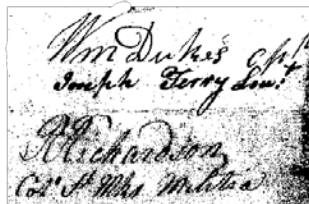 Wm Dukes Capt
Joseph Terry Lieut
R Richardson,
Col. St Mks Militia